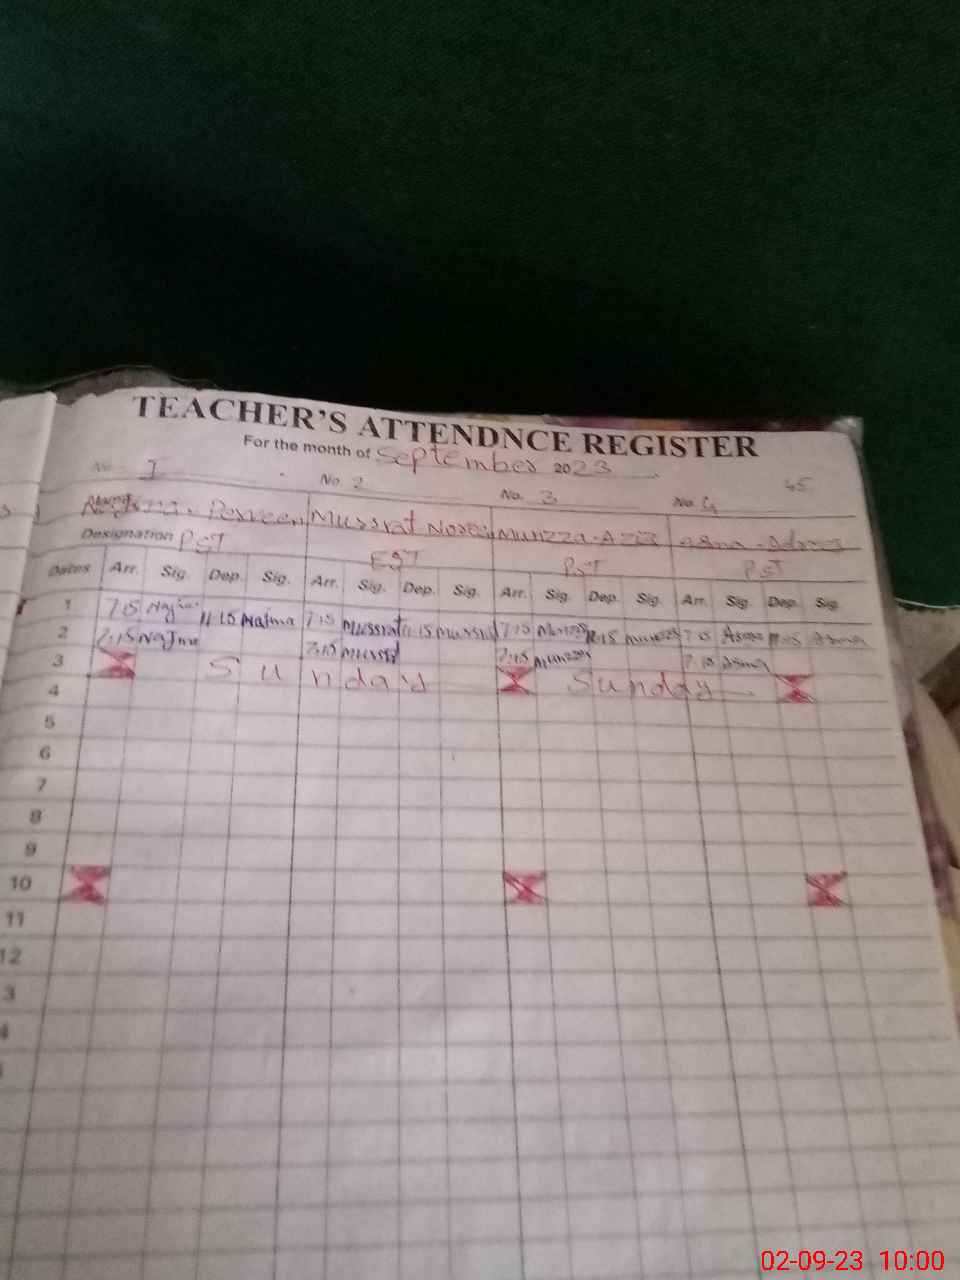 TEACHER'S ATTENDNCE REGISTER
For the month of September 2023
No. 1 No. 2 No. 3 No. 4 45
Perveen Mussrat Noreen Munzza. Aziz Asma
Designation PST EST PST PST
Dates Arr. Sig. Dep. Sig. Arr. Sig. Dep. Sig. Arr. Sig. Dep. Sig. Arr. Sig. Dep. Sig.
1 7.15 Najma 11.15 Najma 7.15 Mussrat 11.15 mussrat 7.15 Munzza 11.15 munzza 7.15 Asma 11.15 Asma
2 7.15 Najma 7.15 mussrat 7.15 munzza 7.15 Asma
3 Sunday Sunday
4
5
6
7
8
9
10
11
12
3
4
02-09-23 10:00